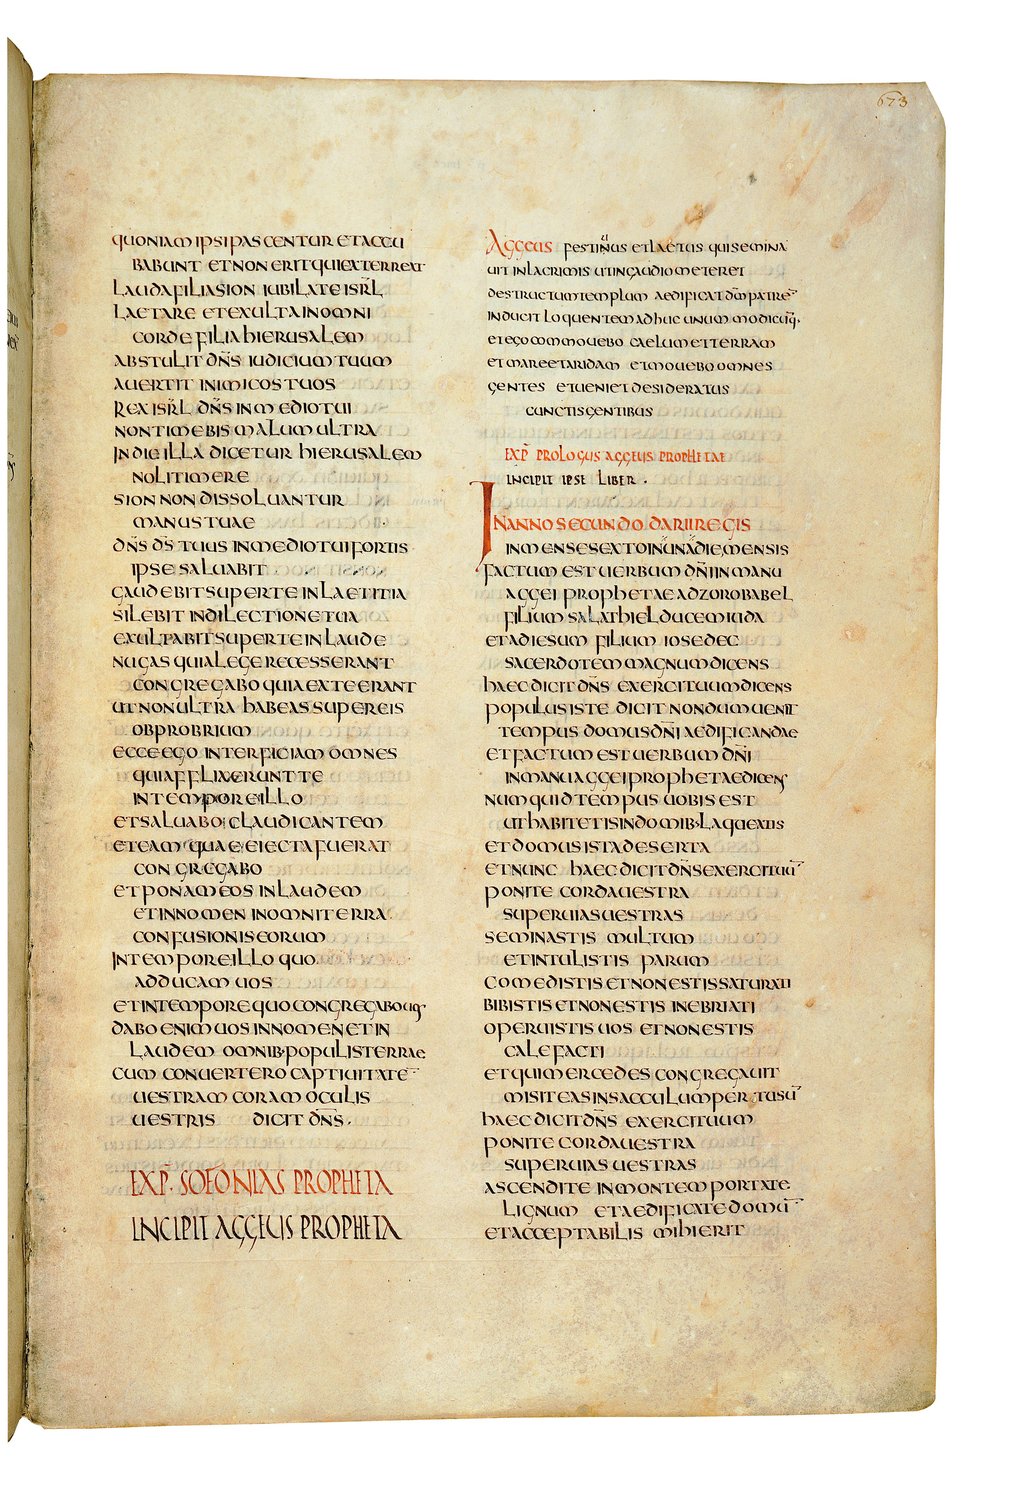 673
quoniam ipsi pascentur et accu
babunt et non erit qui exterreat
Lauda filia sion iubilate isrl̄
Laetare et exulta in omni
corde filia hierusalem
abstulit dn̄s iudicium tuum
auertit inimicos tuos
Rex isrl̄ dn̄s in medio tui
non timebis malum ultra
In die illa dicetur hierusalem
noli timere
sion non dissoluantur
manus tuae
dn̄s ds̄ tuus in medio tui fortis
ipse saluabit
gaudebit super te in laetitia
silebit in dilectione tua
exultabit super te in laude
nugas qui a lege recesserant
congregabo quia ex te erant
ut non ultra habeas super eis
obprobrium
ecce ego interficiam omnes
qui afflixerunt te
in tempore illo
et saluabo claudicantem
et eam quae eiecta fuerat
congregabo
et ponam eos in laudem
et in nomen in omni terra
confusionis eorum
In tempore illo quo
adducam uos
et in tempore quo congregabo uos
dabo enim uos in nomen et in
Laudem omnib· populis terrae
cum conuertero captiuitatē
uestram coram oculis
uestris dicit dn̄s·
EXP̄· SOFONIAS PROPHETA
INCIPIT AGGEUS PROPHETA
Aggeus festinus et laetus qui semina
uit in lacrimis ut in gaudio meteret
destructum templum aedificat dm̄ patrē
inducit loquentem adhuc unum modicūq·
et ego commouebo caelum et terram
et mare et aridam et mouebo omnes
gentes et ueniet desideratus
cunctis gentibus
EXP̄ PROLOGUS AGGEUS PROPHETAE
INCIPIT IPSE LIBER·
IN anno secundo darii regis
in mense sexto in una die mensis
factum est uerbum dn̄i in manu
aggei prophetae ad zorobabel
filium salathiel ducem iuda
et ad iesum filium iosedec
sacerdotem magnum dicens
haec dicit dn̄s exercituum dicens
populus iste dicit nondum uenit
tempus domus dn̄i aedificandae
et factum est uerbum dn̄i
in manu aggei prophetae dicens
numquid tempus uobis est
ut habitetis in domib· laqueatis
et domus ista deserta
et nunc haec dicit dn̄s exercituū
ponite corda uestra
super uias uestras
seminastis multum
et intulistis parum
comedistis et non estis saturati
bibistis et non estis inebriati
operuistis uos et non estis
calefacti
et qui mercedes congregauit
misit eas in sacculum pertusū
haec dicit dn̄s exercituum
ponite corda uestra
super uias uestras
ascendite in montem portate
Lignum et aedificate domū
et acceptabilis mihi erit